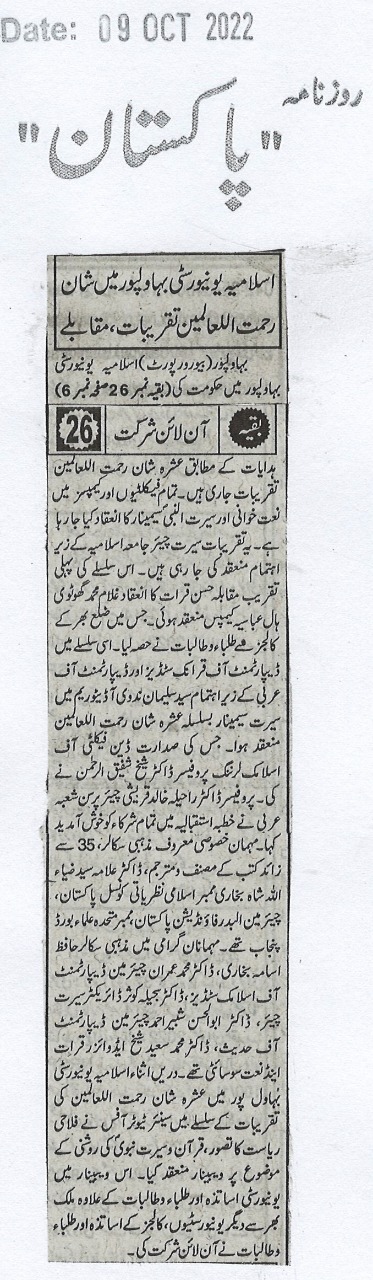 Date: 09 OCT 2022
روزنامہ
"پاکستان"
اسلامیہ یونیورسٹی بہاولپور میں شان
رحمت اللعالمین تقریبات، مقابلے
بہاولپور (بیورو رپورٹ) اسلامیہ یونیورسٹی
بہاولپور میں حکومت کی (بقیہ نمبر 26 صفحہ نمبر 6)
بقیہ آن لائن شرکت 26
ہدایات کے مطابق عشرہ شان رحمت اللعالمین
تقریبات جاری ہیں۔ تمام فیکلٹیوں اور کیمپسز میں
نعت خوانی اور سیرت النبی سیمینار کا انعقاد کیا جا رہا
ہے۔ یہ تقریبات سیرت چیئر جامعہ اسلامیہ کے زیر
اہتمام منعقد کی جا رہی ہیں۔ اس سلسلے کی پہلی
تقریب مقابلہ حسن قرات کا انعقاد غلام محمد گھوٹوی
ہال عباسیہ کیمپس منعقد ہوئی۔ جس میں ضلع بھر کے
کالجز سے طلباء و طالبات نے حصہ لیا۔ اسی سلسلے میں
ڈیپارٹمنٹ آف قرانک سٹڈیز اور ڈیپارٹمنٹ آف
عربی کے زیر اہتمام سید سلیمان ندوی آڈیٹوریم میں
سیرت سیمینار بسلسلہ عشرہ شان رحمت اللعالمین
منعقد ہوا۔ جس کی صدارت ڈین فیکلٹی آف
اسلامک لرننگ پروفیسر ڈاکٹر شیخ شفیق الرحمن نے
کی۔ پروفیسر ڈاکٹر راحیلہ خالد قریشی چیئر پرسن شعبہ
عربی نے خطبہ استقبالیہ میں تمام شرکاء کو خوش آمدید
کہا۔ مہمان خصوصی معروف مذہبی سکالر، 35 سے
زائد کتب کے مصنف و مترجم، ڈاکٹر علامہ سید ضیاء
اللہ شاہ بخاری ممبر اسلامی نظریاتی کونسل پاکستان،
چیئرمین البدر فاؤنڈیشن پاکستان، ممبر متحدہ علماء بورڈ
پنجاب تھے۔ مہمانان گرامی میں مذہبی سکالر حافظ
اسامہ بخاری، ڈاکٹر محمد عمران چیئرمین ڈیپارٹمنٹ
آف اسلامک سٹڈیز، ڈاکٹر سجیلہ کوثر ڈائریکٹر سیرت
چیئر، ڈاکٹر ابو الحسن شبیر احمد چیئرمین ڈیپارٹمنٹ
آف حدیث، ڈاکٹر محمد سعید شیخ ایڈوائزر قرات
اینڈ نعت سوسائٹی تھے۔ دریں اثناء اسلامیہ یونیورسٹی
بہاول پور میں عشرہ شان رحمت اللعالمین کی
تقریبات کے سلسلے میں سینئر ٹیوٹر آفس نے فلاحی
ریاست کا تصور، قرآن و سیرت نبوی کی روشنی کے
موضوع پر ویبینار منعقد کیا۔ اس ویبینار میں
یونیورسٹی اساتذہ اور طلباء و طالبات کے علاوہ ملک
بھر سے دیگر یونیورسٹیوں، کالجز کے اساتذہ اور طلباء
و طالبات نے آن لائن شرکت کی۔